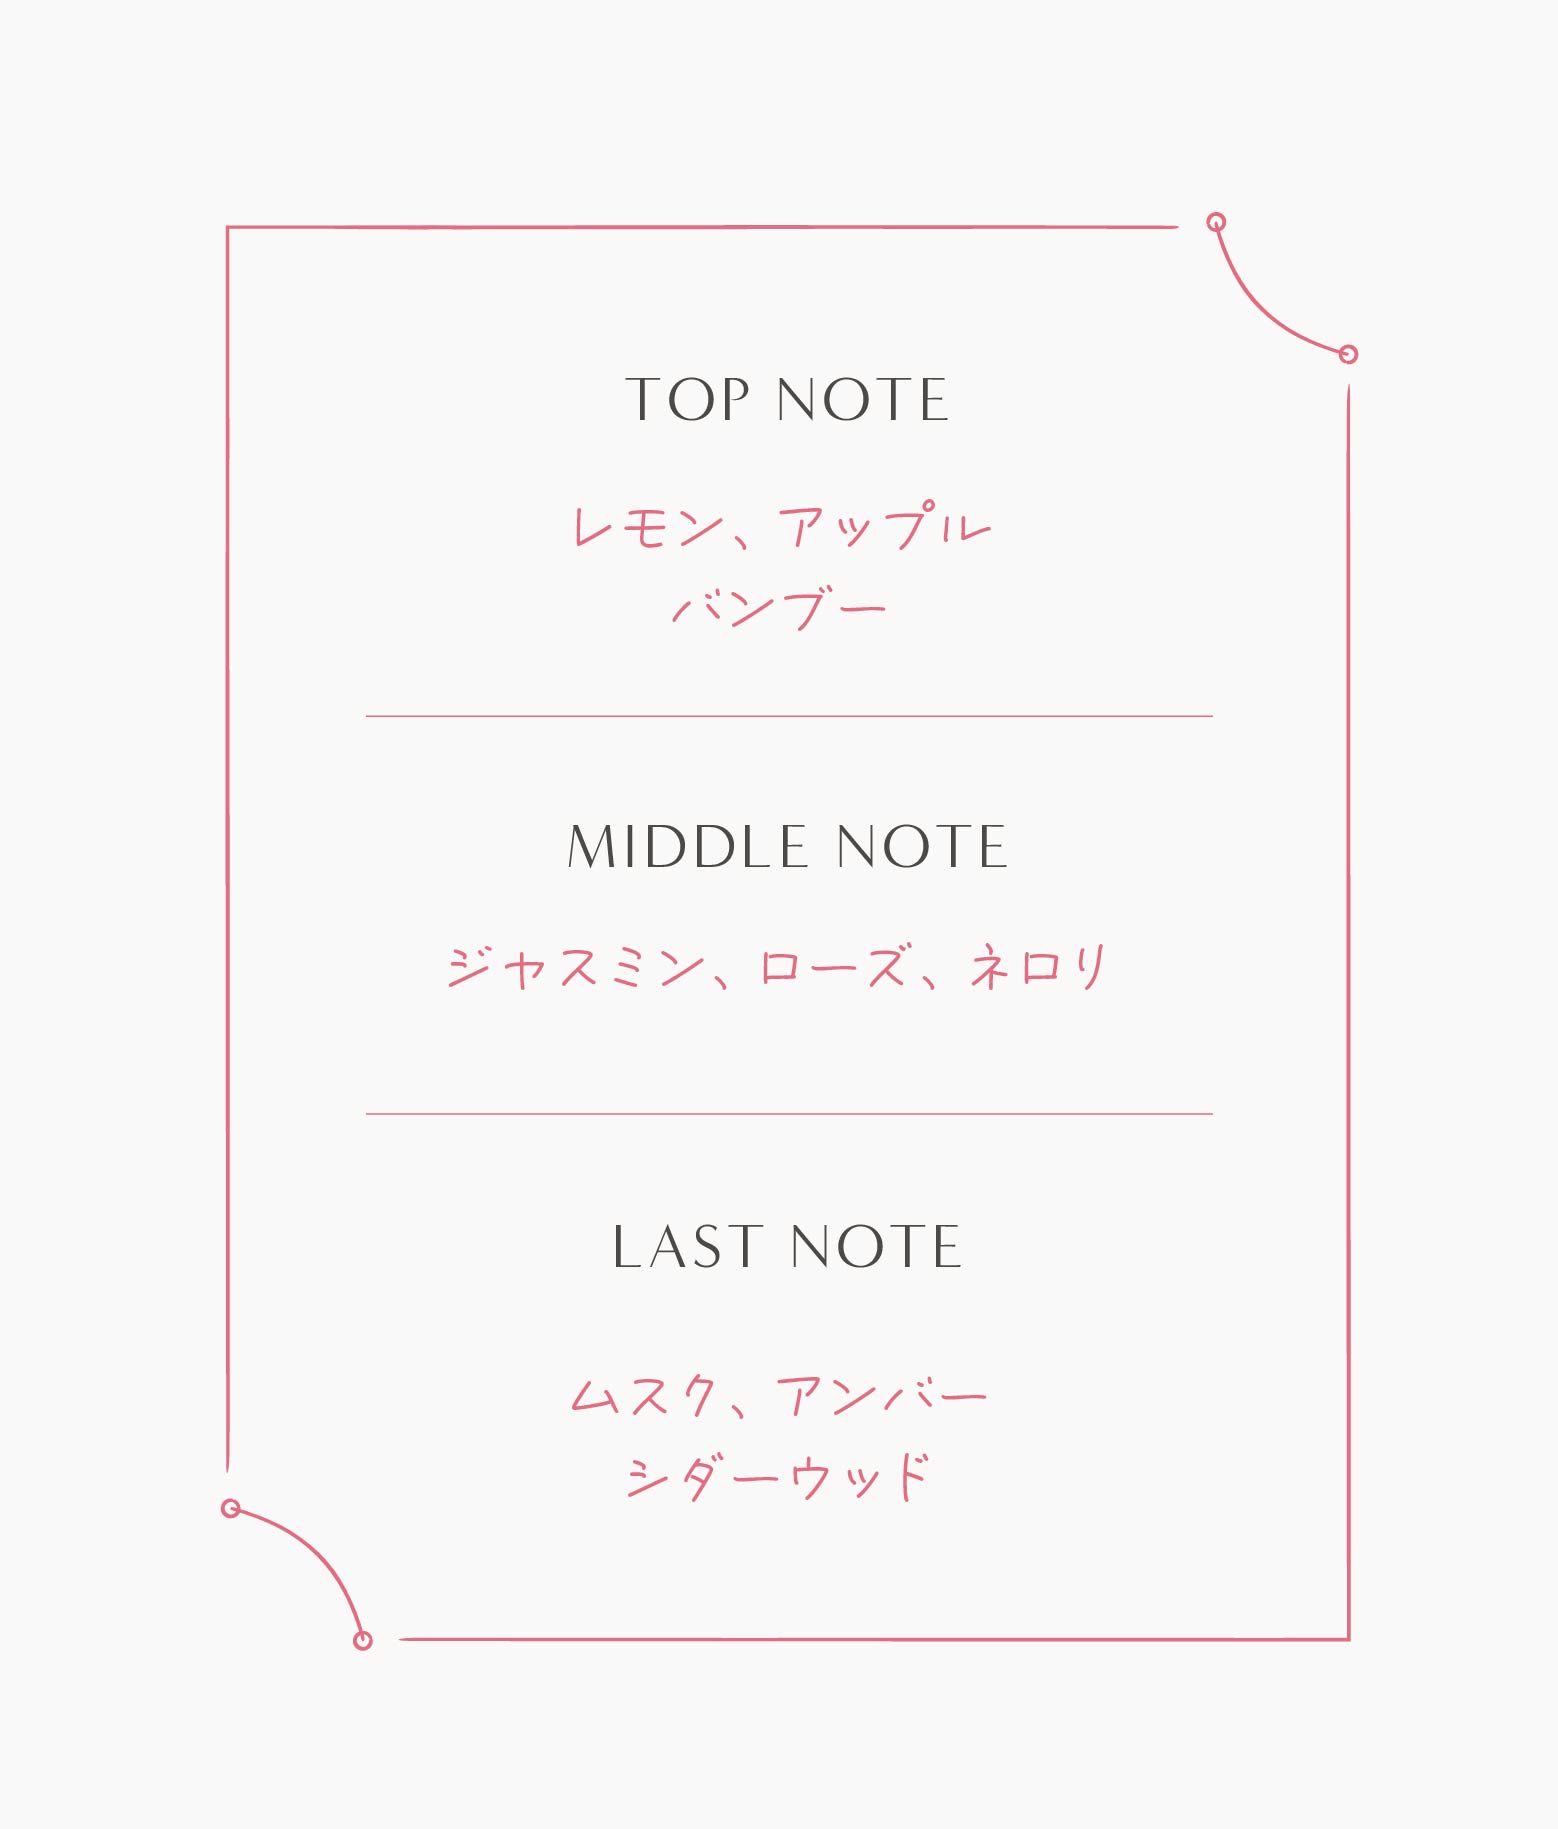 TOP NOTE
レモン、アップル
バンブー
MIDDLE NOTE
ジャスミン、ローズ、ネロリ
LAST NOTE
ムスク、アンバー
シダーウッド